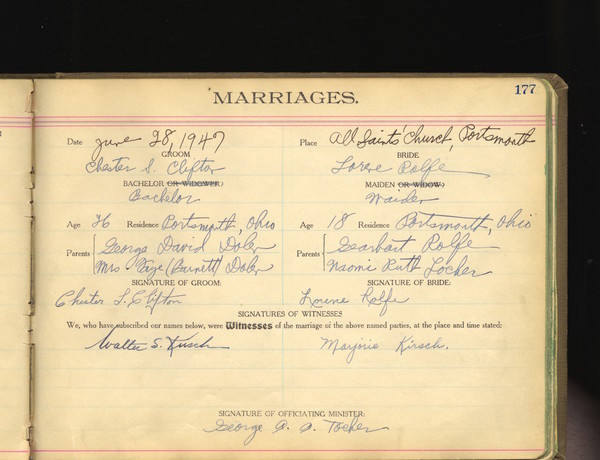 177
MARRIAGES.
Date June 28, 1947 Place All Saints' Church, Portsmouth
GROOM BRIDE
Chester S. Clifton Lorene Rolfe
BACHELOR OR WIDOWER: MAIDEN OR WIDOW:
Bachelor Maiden
Age 26 Residence Portsmouth, Ohio Age 18 Residence Portsmouth, Ohio
Parents George David Doler Parents Gearhart Rolfe
Mrs Faye (Burnett) Doler Naomi Ruth Locher
SIGNATURE OF GROOM: SIGNATURE OF BRIDE:
Chester S. Clifton Lorene Rolfe
SIGNATURES OF WITNESSES
We, who have subscribed our names below, were Witnesses of the marriage of the above named parties, at the place and time stated:
Walter S. Kirsch Marjorie Kirsch.
SIGNATURE OF OFFICIATING MINISTER:
George A. A. Tocher